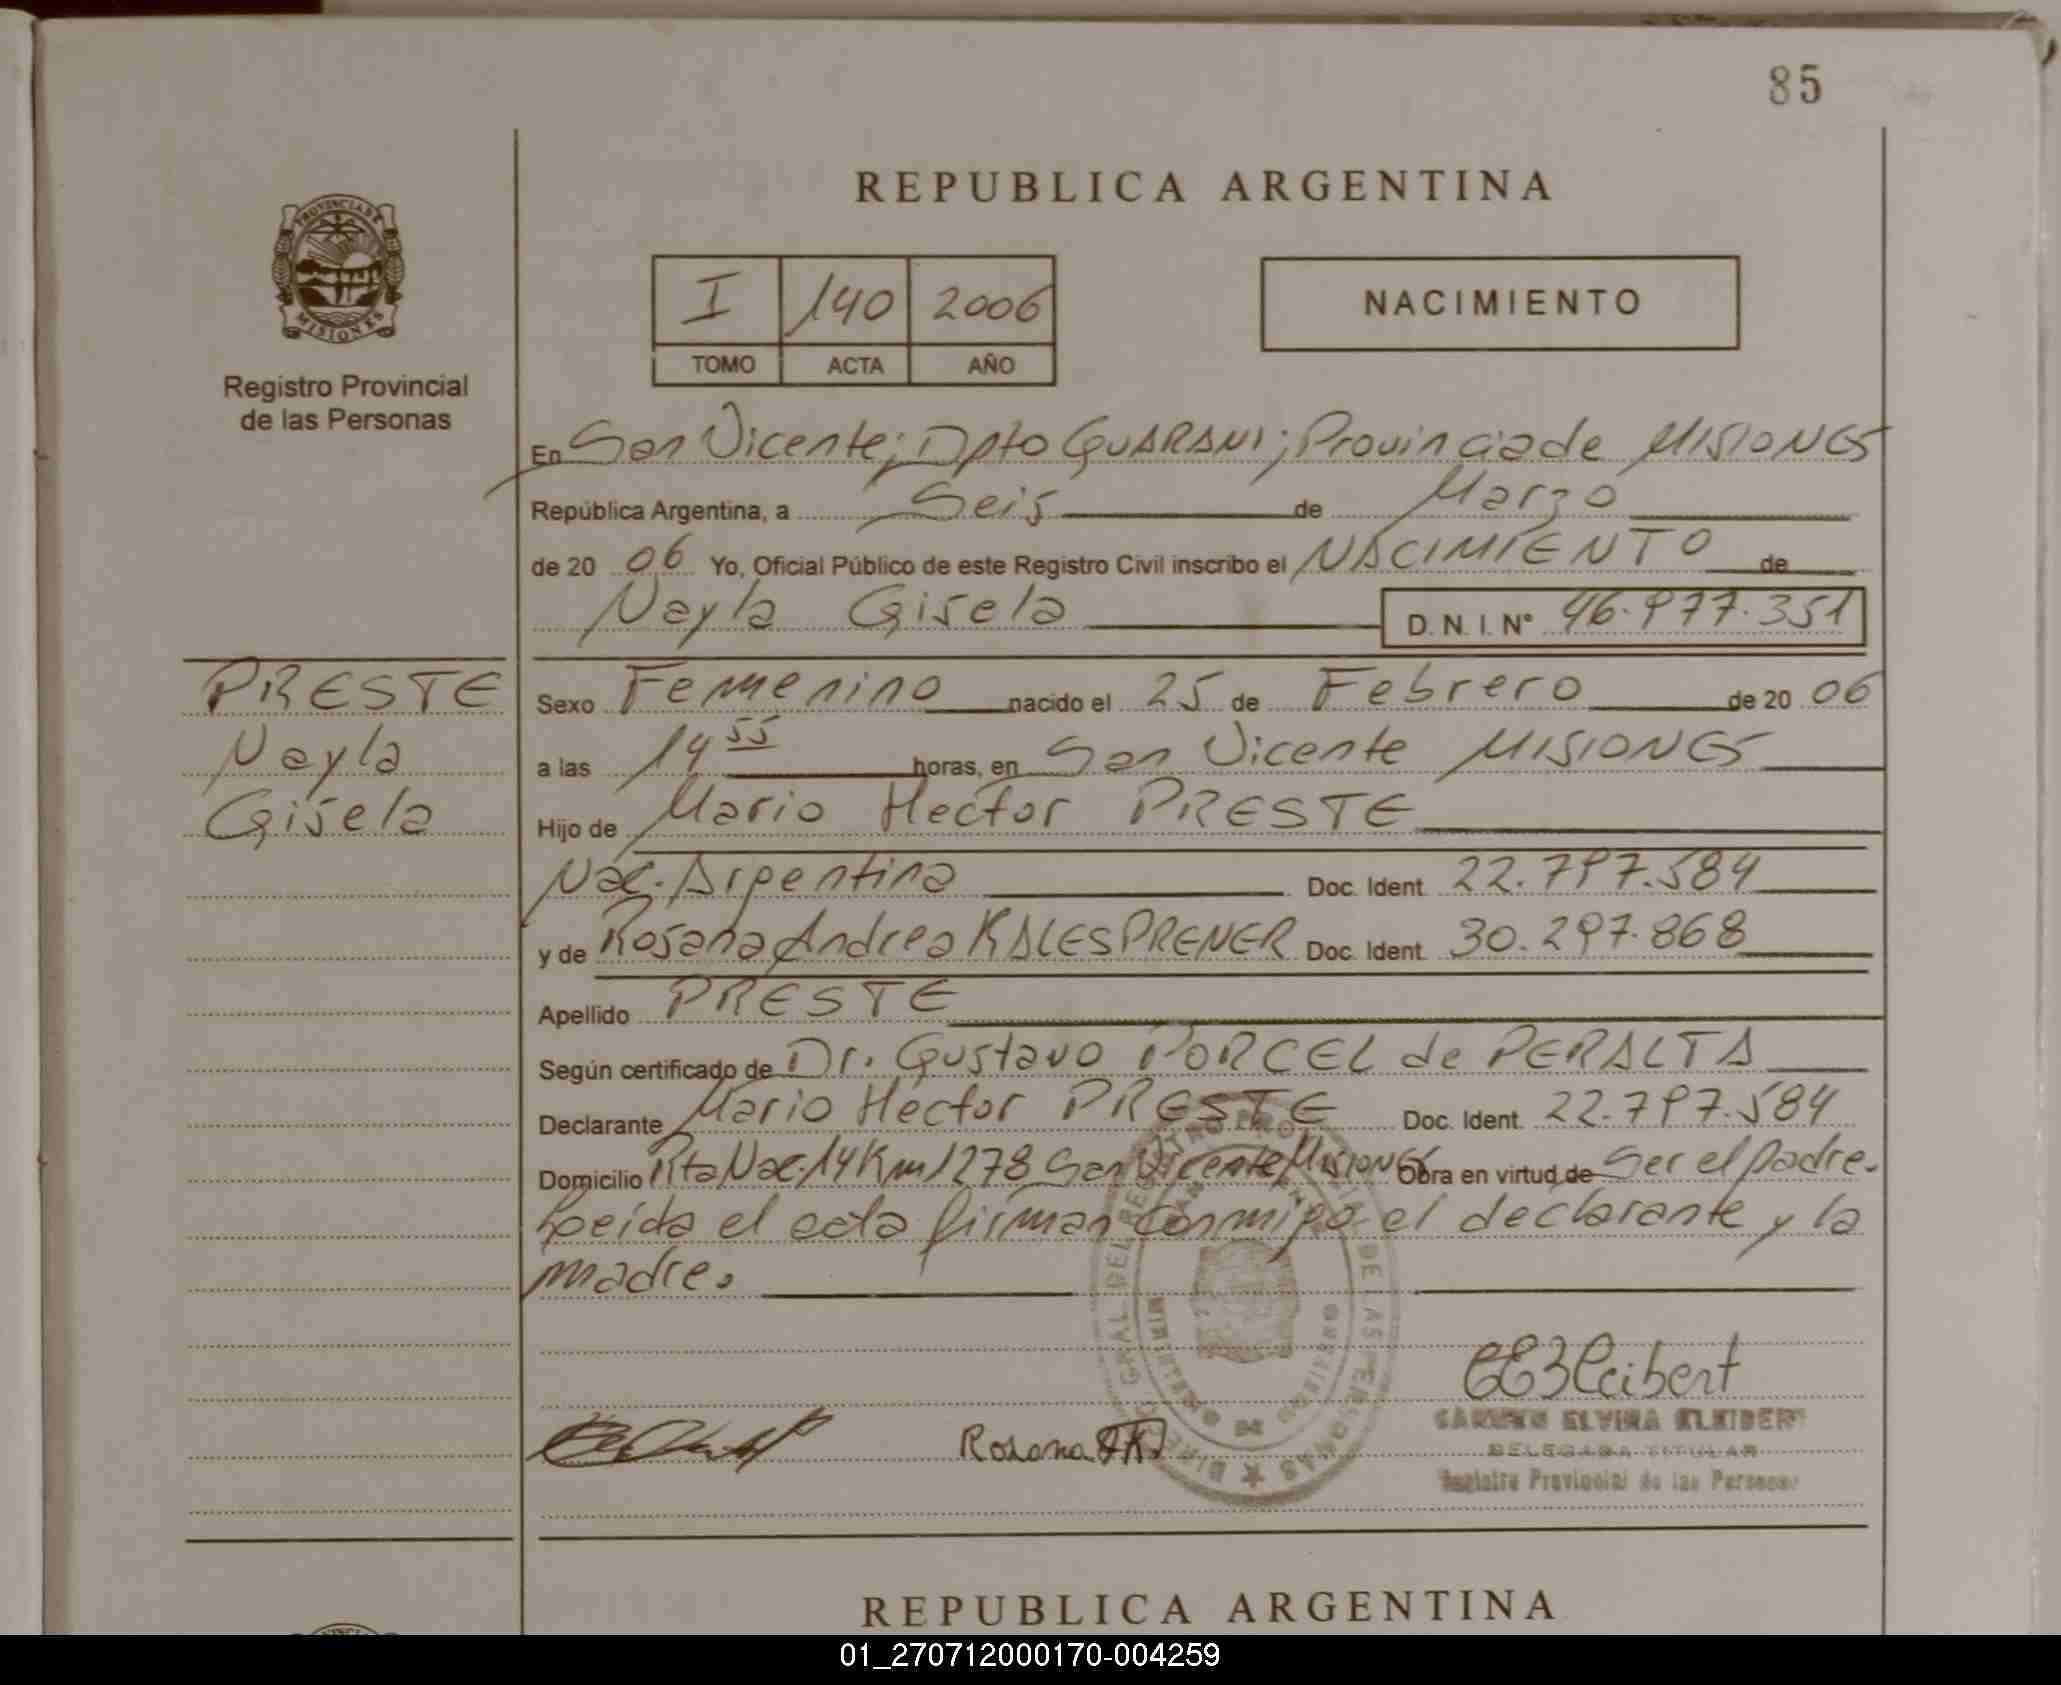 85
REPUBLICA ARGENTINA
I 140 2006
TOMO ACTA AÑO
NACIMIENTO
PROVINCIA DE
MISIONES
Registro Provincial
de las Personas
En San Vicente; Dpto GUARANI; Provincia de MISIONES
República Argentina, a Seis de Marzo
de 20 06 Yo, Oficial Público de este Registro Civil inscribo el NACIMIENTO de
Nayla Gisela D. N. I. N° 46.977.351
PRESTE
Nayla
Gisela
Sexo Femenino nacido el 25 de Febrero de 20 06
a las 14 55 horas, en San Vicente MISIONES
Hijo de Mario Hector PRESTE
Nac. Argentina Doc. Ident. 22.797.584
y de Rosana Andrea KALESPRENER Doc. Ident. 30.297.868
Apellido PRESTE
Según certificado de Dr. Gustavo PORCEL de PERALTA
Declarante Mario Hector PRESTE Doc. Ident. 22.797.584
Domicilio Rta Nac. 14 Km 1278 San Vicente Misiones Obra en virtud de Ser el padre.
Leida el acta firman conmigo el declarante y la
madre.
Rosana
CARMEN ELVIRA KLEIBERT
DELEGADA TITULAR
Registro Provincial de las Personas
REPUBLICA ARGENTINA
01_270712000170-004259